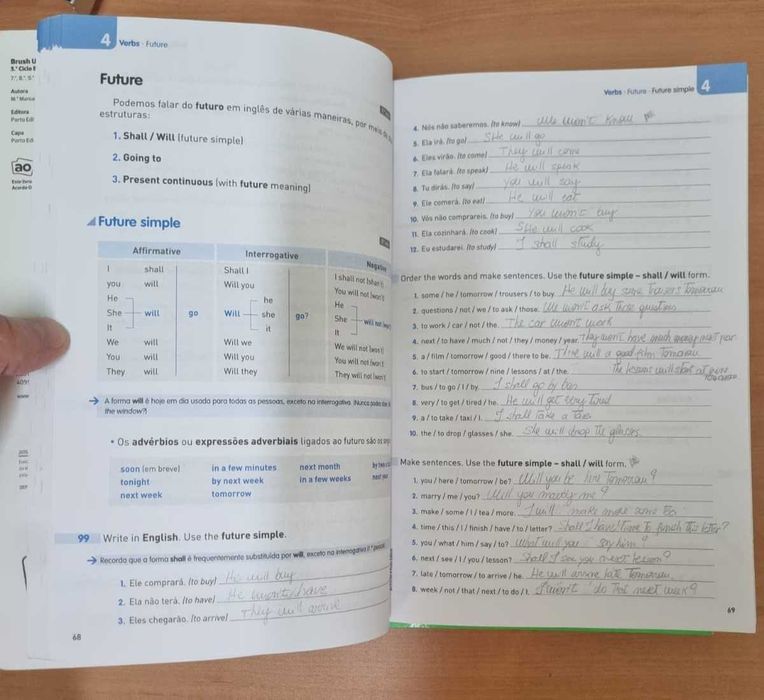 Brush U
3.º Ciclo
Autora
Editora
Porto Edi
Capa
Porto Edi
ao
4 Verbs · Future
Future
Podemos falar do futuro em inglês de várias maneiras, por meio de
estruturas:
1. Shall / Will (future simple)
2. Going to
3. Present continuous (with future meaning)
Future simple
Affirmative Interrogative Negative
I shall Shall I I shall not (shan't)
you will Will you You will not (won't)
He he He
She will go Will she go? She will not
It it It
We will Will we We will not (won't)
You will Will you You will not (won't)
They will Will they They will not (won't)
A forma will é hoje em dia usada para todas as pessoas, exceto na interrogativa
the window?)
• Os advérbios ou expressões adverbiais ligados ao futuro são os
soon (em breve) in a few minutes next month
tonight by next week in a few weeks next year
next week tomorrow
99 Write in English. Use the future simple.
Recorda que a forma shall é frequentemente substituída por will, exceto na interrogativa
1. Ele comprará. (to buy) He will buy
2. Ela não terá. (to have) He won't have
3. Eles chegarão. (to arrive) They will arrive
68
Verbs · Future · Future simple 4
4. Nós não saberemos. (to know) We won't know
5. Ela irá. (to go) SHe will go
6. Eles virão. (to come) They will come
7. Ela falará. (to speak) He will speak
8. Tu dirás. (to say) you will say
9. Ele comerá. (to eat) He will eat
10. Vós não comprareis. (to buy) You won't buy
11. Ela cozinhará. (to cook) SHe will cook
12. Eu estudarei. (to study) I shall study
Order the words and make sentences. Use the future simple – shall / will form.
1. some / he / tomorrow / trousers / to buy. He will buy some Tomorrow
2. questions / not / we / to ask / those. We won't ask those questions
3. to work / car / not / the. The car won't work
4. next / to have / much / not / they / money / year. They won't have much money next year
5. a / film / tomorrow / good / there to be. will a good film
6. to start / tomorrow / nine / lessons / at / the. The lessons will start at nine
7. bus / to go / I / by. I shall go by bus
8. very / to get / tired / he. He will get very tired
9. a / to take / taxi / I. I shall Take a
10. the / to drop / glasses / she. She will drop the glasses
Make sentences. Use the future simple – shall / will form.
1. you / here / tomorrow / be? Will you be Tomorrow?
2. marry / me / you? Will you me?
3. make / some / I / tea / more. I will make more some
4. time / this / I / finish / have / to / letter? Shall I have time To finish this letter?
5. you / what / him / say / to? What will you say him?
6. next / see / I / you / lesson? Shall I see you next lesson?
7. late / tomorrow / to arrive / he. He will arrive late Tomorrow
8. week / not / that / next / to do / I. I won't do That next week?
69